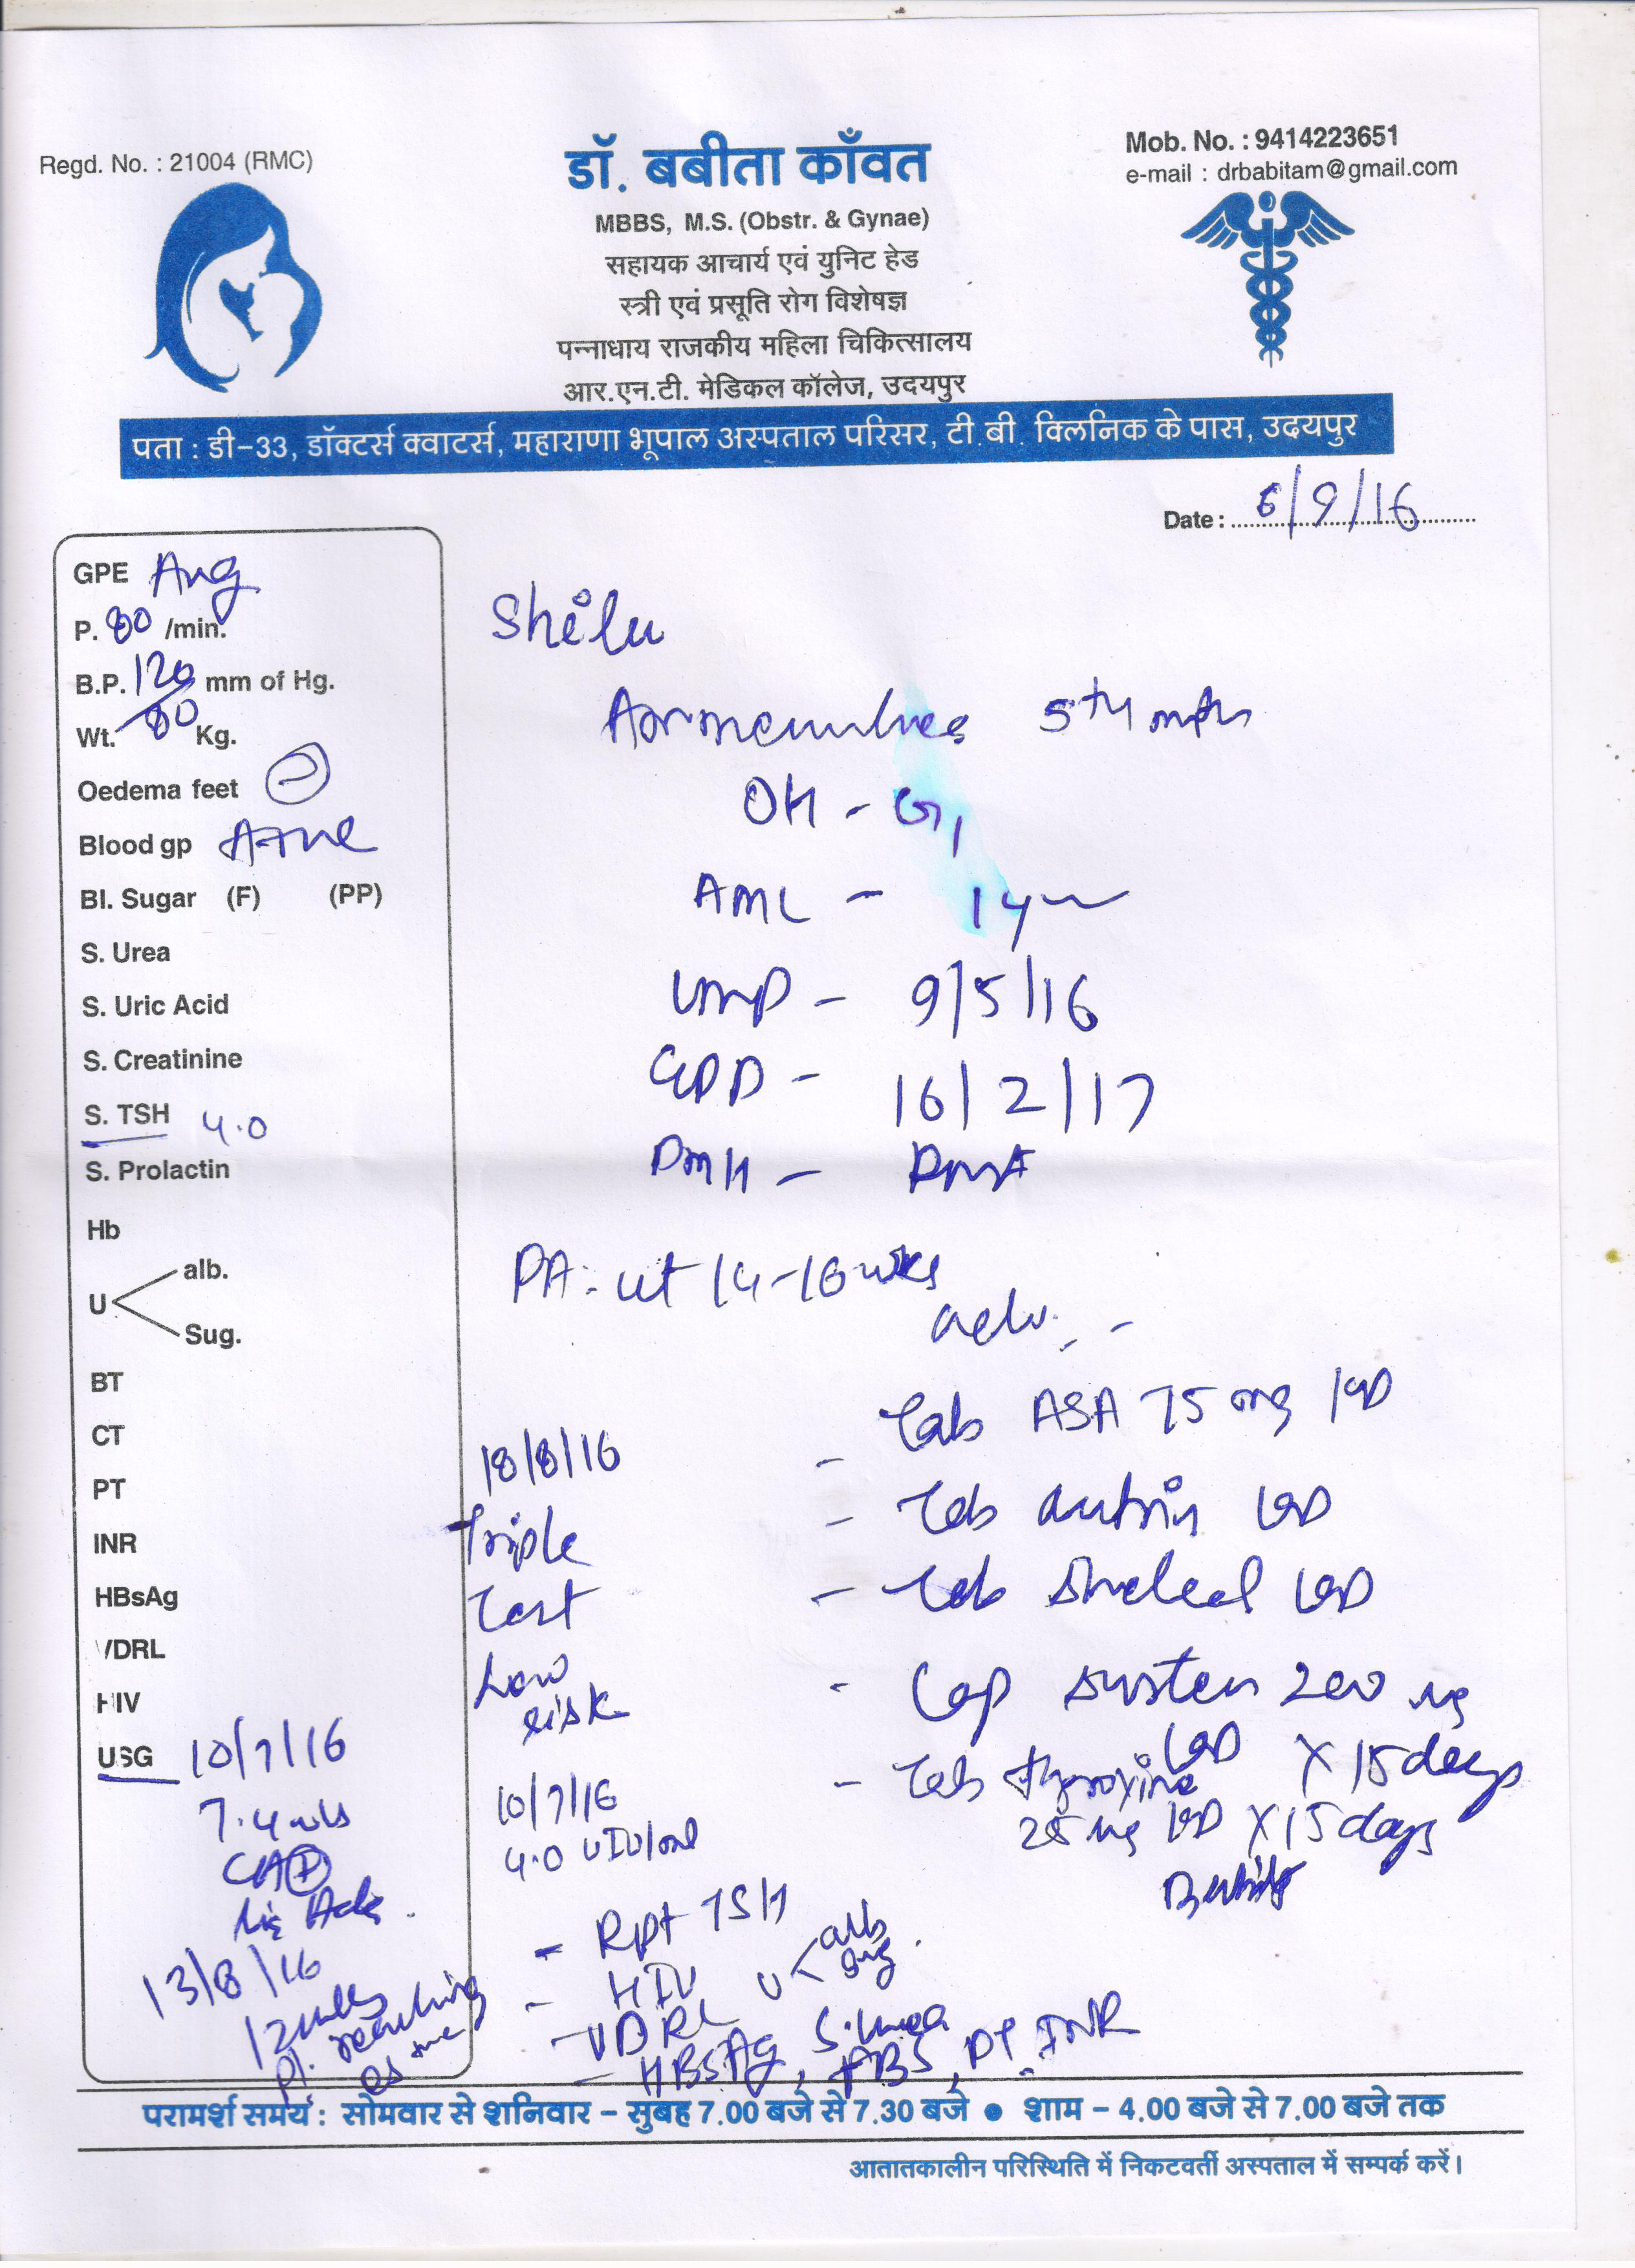 Regd. No. : 21004 (RMC)
डॉ. बबीता काँवत
MBBS, M.S. (Obstr. & Gynae)
सहायक आचार्य एवं युनिट हेड
स्त्री एवं प्रसूति रोग विशेषज्ञ
पन्नाधाय राजकीय महिला चिकित्सालय
आर.एन.टी. मेडिकल कॉलेज, उदयपुर
Mob. No. : 9414223651
e-mail : drbabitam@gmail.com
पता : डी-33, डॉक्टर्स क्वाटर्स, महाराणा भूपाल अस्पताल परिसर, टी.बी. क्लिनिक के पास, उदयपुर
Date : 6/9/16
GPE Avg
P. 80 /min.
B.P. 120 mm of Hg.
80
Wt. Kg.
Oedema feet
Blood gp A+ve
Bl. Sugar (F) (PP)
S. Urea
S. Uric Acid
S. Creatinine
S. TSH 4.0
S. Prolactin
Hb
U
alb.
Sug.
BT
CT
PT
INR
HBsAg
VDRL
HIV
USG 10/7/16
7.4 wks
13/8/16
12 wks
Pl. reaching
os
Shilu
5th mth
OH - G1
AML - 1 yr
LMP - 9/5/16
EDD - 16/2/17
PMH -
PA: ut 14-16 wks
adv. -
- Tab ASA 75 mg 1OD
- Tab autrin 1OD
- Tab shelcal 1OD
- Cap susten 200 mg
1OD x 15 days
- Tab thyroxine
25 ug 1OD x 15 days
18/8/16
Triple
Test
Low
risk
10/7/16
4.0 uIU/ml
- Rpt TSH
- HIV U alb sug
- VDRL S. Urea
- HBsAg, FBS, PT INR
परामर्श समय : सोमवार से शनिवार – सुबह 7.00 बजे से 7.30 बजे ● शाम – 4.00 बजे से 7.00 बजे तक
आतातकालीन परिस्थिति में निकटवर्ती अस्पताल में सम्पर्क करें।